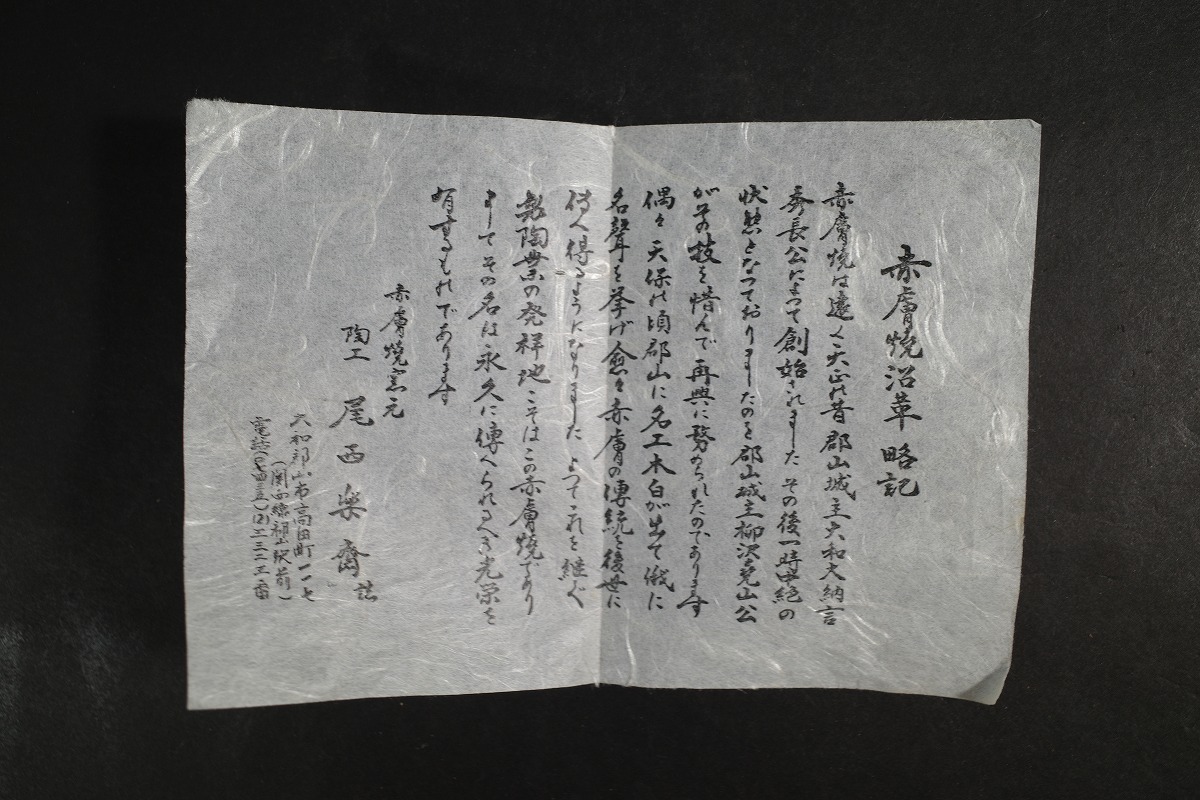 赤膚焼沿革略記
赤膚焼は遠く天正の昔郡山城主大和大納言
秀長公によつて創始されました その後一時中絶の
状態となつておりましたのを郡山城主柳沢堯山公
がその技を惜んで再興に努められたのであります
偶々天保の頃郡山に名工木白が出て俄に
名聲を挙げ愈々赤膚の傳統を後世に
傳へ得るようになりました よつてこれを継ぐ
陶業の発祥地こそはこの赤膚焼であり
ましてその名は永久に傳へられるべき光栄を
有するものであります
赤膚焼窯元
陶工 尾西楽斎 誌
大和郡山市高田町一一七
(関西線郡山駅前)
電話(〇七四三五)(2)